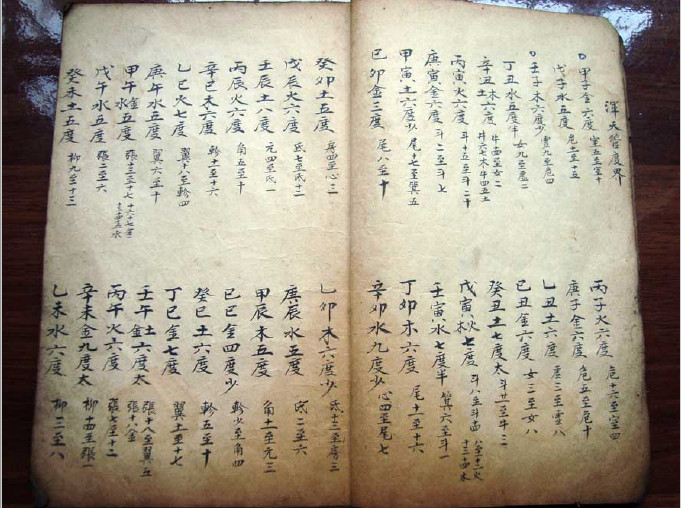 渾天管度界
甲子金六度 室五至室十
丙子火六度 危十六至室四
戊子水五度 危十一至十五
庚子金六度 危五至危十
壬子木六度少 虛九至危四
乙丑土六度 虛三至虛八
丁丑水五度半 女九至虛二
己丑金六度 女三至女八
辛丑土六度 牛四至女二
癸丑土七度太 斗廿一至牛三
丙寅火六度 斗十五至斗二十
戊寅 七度
庚寅金六度 斗二至斗七
壬寅水七度半 箕六至斗一
甲寅土六度少 尾十七至箕五
丁卯木六度 尾十一至十六
己卯金三度 尾八至十
辛卯水九度少 心四至尾七
癸卯土五度 房四至心三
乙卯木六度少 氐十三至房三
戊辰火六度 氐七至氐十二
庚辰水五度 氐二至六
壬辰土八度 亢四至氐一
甲辰木五度 角十一至亢三
丙辰火六度 角五至十
己巳金四度少 軫少至角四
辛巳木六度 軫十一至十六
癸巳土六度 軫五至十
乙巳火七度 翼十八至軫四
丁巳金七度 翼土至十七
庚午水五度 翼六至十
壬午金六度太 張十八至翼五 張十八金
甲午金水五度 張十三至十七
丙午火六度 張七至十二
戊午水五度 張二至六
辛未金九度太 柳十四至張一
癸未土五度 柳九至十三
乙未水六度 柳三至八